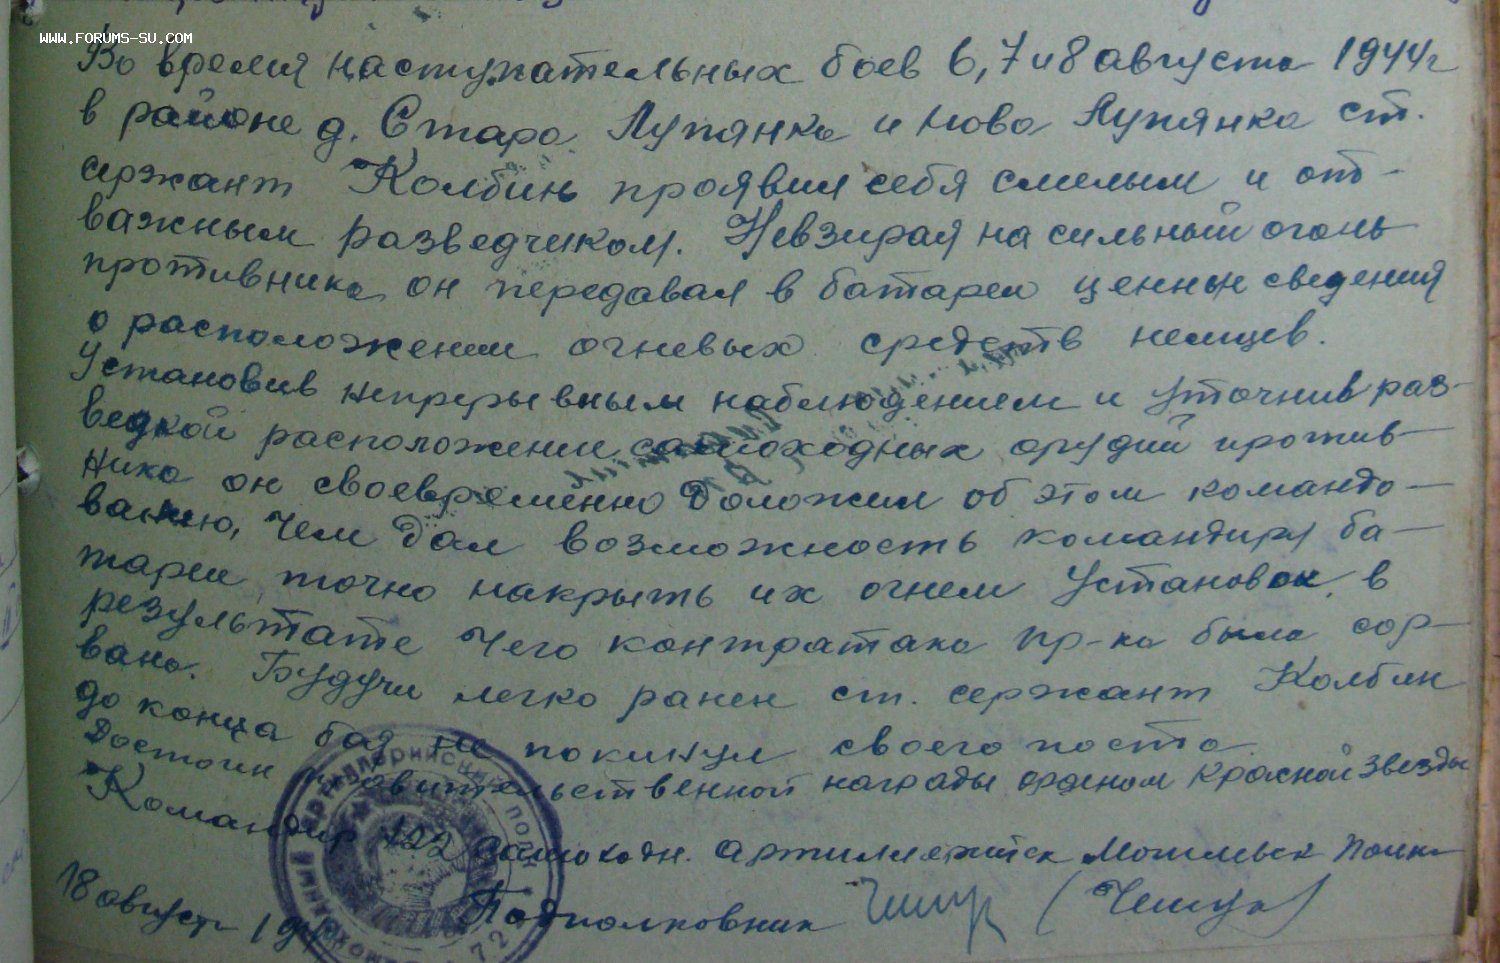 WWW.FORUMS-SU.COM
Во время наступательных боев 6, 7 и 8 августа 1944г
в районе д. Старо Лупянка и Ново Лупянка ст.
сержант Колбин проявил себя смелым и от-
важным разведчиком. Невзирая на сильный огонь
противника он передавал в батарею ценные сведения
о расположении огневых средств немцев.
Установив непрерывным наблюдением и уточнив раз-
ведкой расположение самоходных орудий против-
ника он своевременно доложил об этом командо-
ванию, чем дал возможность командиру ба-
тареи точно накрыть их огнем установок, в
результате чего контратака пр-ка была сор-
вана. Будучи легко ранен ст. сержант Колбин
до конца боя не покинул своего поста.
Достоин правительственной награды орденом Красной Звезды
Командир 122 самоходн. артиллерийск Мотильск полка
18 август 194 Подполковник (Чешук)